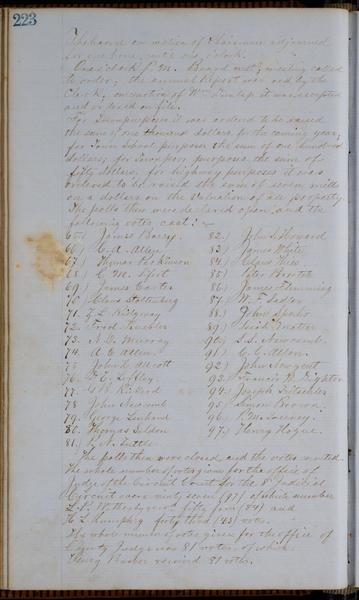 223
on motion of Chairman adjourned
for one hour, until one o'clock.
One o'clock P.M. Board met, meeting called
to order; the annual Report was read by the
Clerk, on motion of Wm Dunlap it was accepted
and ordered on file.
For Town purposes it was ordered to be raised
the sum of one thousand dollars for the coming year;
for Town School purposes the sum of one hundred
dollars; for purposes the sum of
fifty dollars, for highway purposes it was
ordered to be raised the sum of seven mills
on a dollar on the valuation of all property.
The polls then were declared open and the
following votes cast: -
65) James Barry.
66) C. A. Allen
67) Thomas Parkinson
68) C. M.
69) James Carter
70. Claus Stoltenburg
71. Z. L. Ridgway
72. Fred
73. N. D. Murray
74. A. E. Allen
75. John L. Alcott
76. Loffley
77. Rixford
78. John Newcomb
79. George Lenhard
80. Thomas Seldon
81. R. N. Tuttle
82.) John S. Howard
83.) James White
84.) Claus Thies
85.) Peter
86) James Flemming
87) W. F. Sadler
88.) John Spohr
89.)
90.) S. S. Newcomb.
91.) C. C. Allen.
92.) John Nugent
93.) Francis
94.) Joseph Fritschler
95.) Simon Brown.
96.) P. M.
97.) Henry Hogue.
The polls then were closed and the votes counted.
The whole number of votes given for the office of
Judge of the Circuit Court for the 8th Judicial
Circuit were ninty seven (97) of which number
L. P. Wetherby rec'd fifty four (54) and
H. L. Humphrey forty three (43) votes.
The whole number of votes given for the office of
County Judge was 81 votes, of which
Henry received 81 votes.